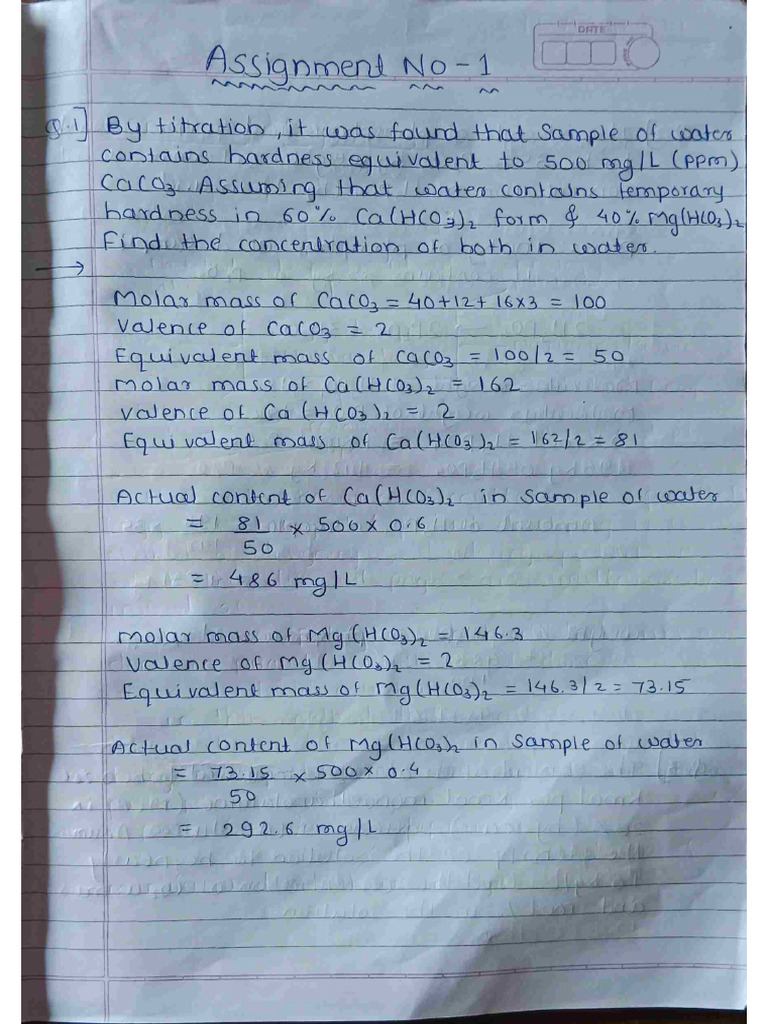 DATE
Assignment No - 1
Q.1] By titration, it was found that sample of water
contains hardness equivalent to 500 mg/L (ppm)
CaCO3. Assuming that water contains temporary
hardness in 60% Ca(HCO3)2 form & 40% Mg(HCO3)2
Find the concentration of both in water.
→
Molar mass of CaCO3 = 40+12+16×3 = 100
Valence of CaCO3 = 2
Equivalent mass of CaCO3 = 100/2 = 50
Molar mass of Ca(HCO3)2 = 162
Valence of Ca(HCO3)2 = 2
Equivalent mass of Ca(HCO3)2 = 162/2 = 81
Actual content of Ca(HCO3)2 in sample of water
= 81/50 × 500 × 0.6
= 486 mg/L
Molar mass of Mg(HCO3)2 = 146.3
Valence of Mg(HCO3)2 = 2
Equivalent mass of Mg(HCO3)2 = 146.3/2 = 73.15
Actual content of Mg(HCO3)2 in sample of water
= 73.15/50 × 500 × 0.4
= 292.6 mg/L